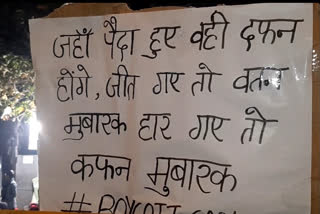 जहाँ पैदा हुए वही दफन
होंगे, जीत गए तो वतन
मुबारक हार गए तो
कफन मुबारक
#BOYCOTT